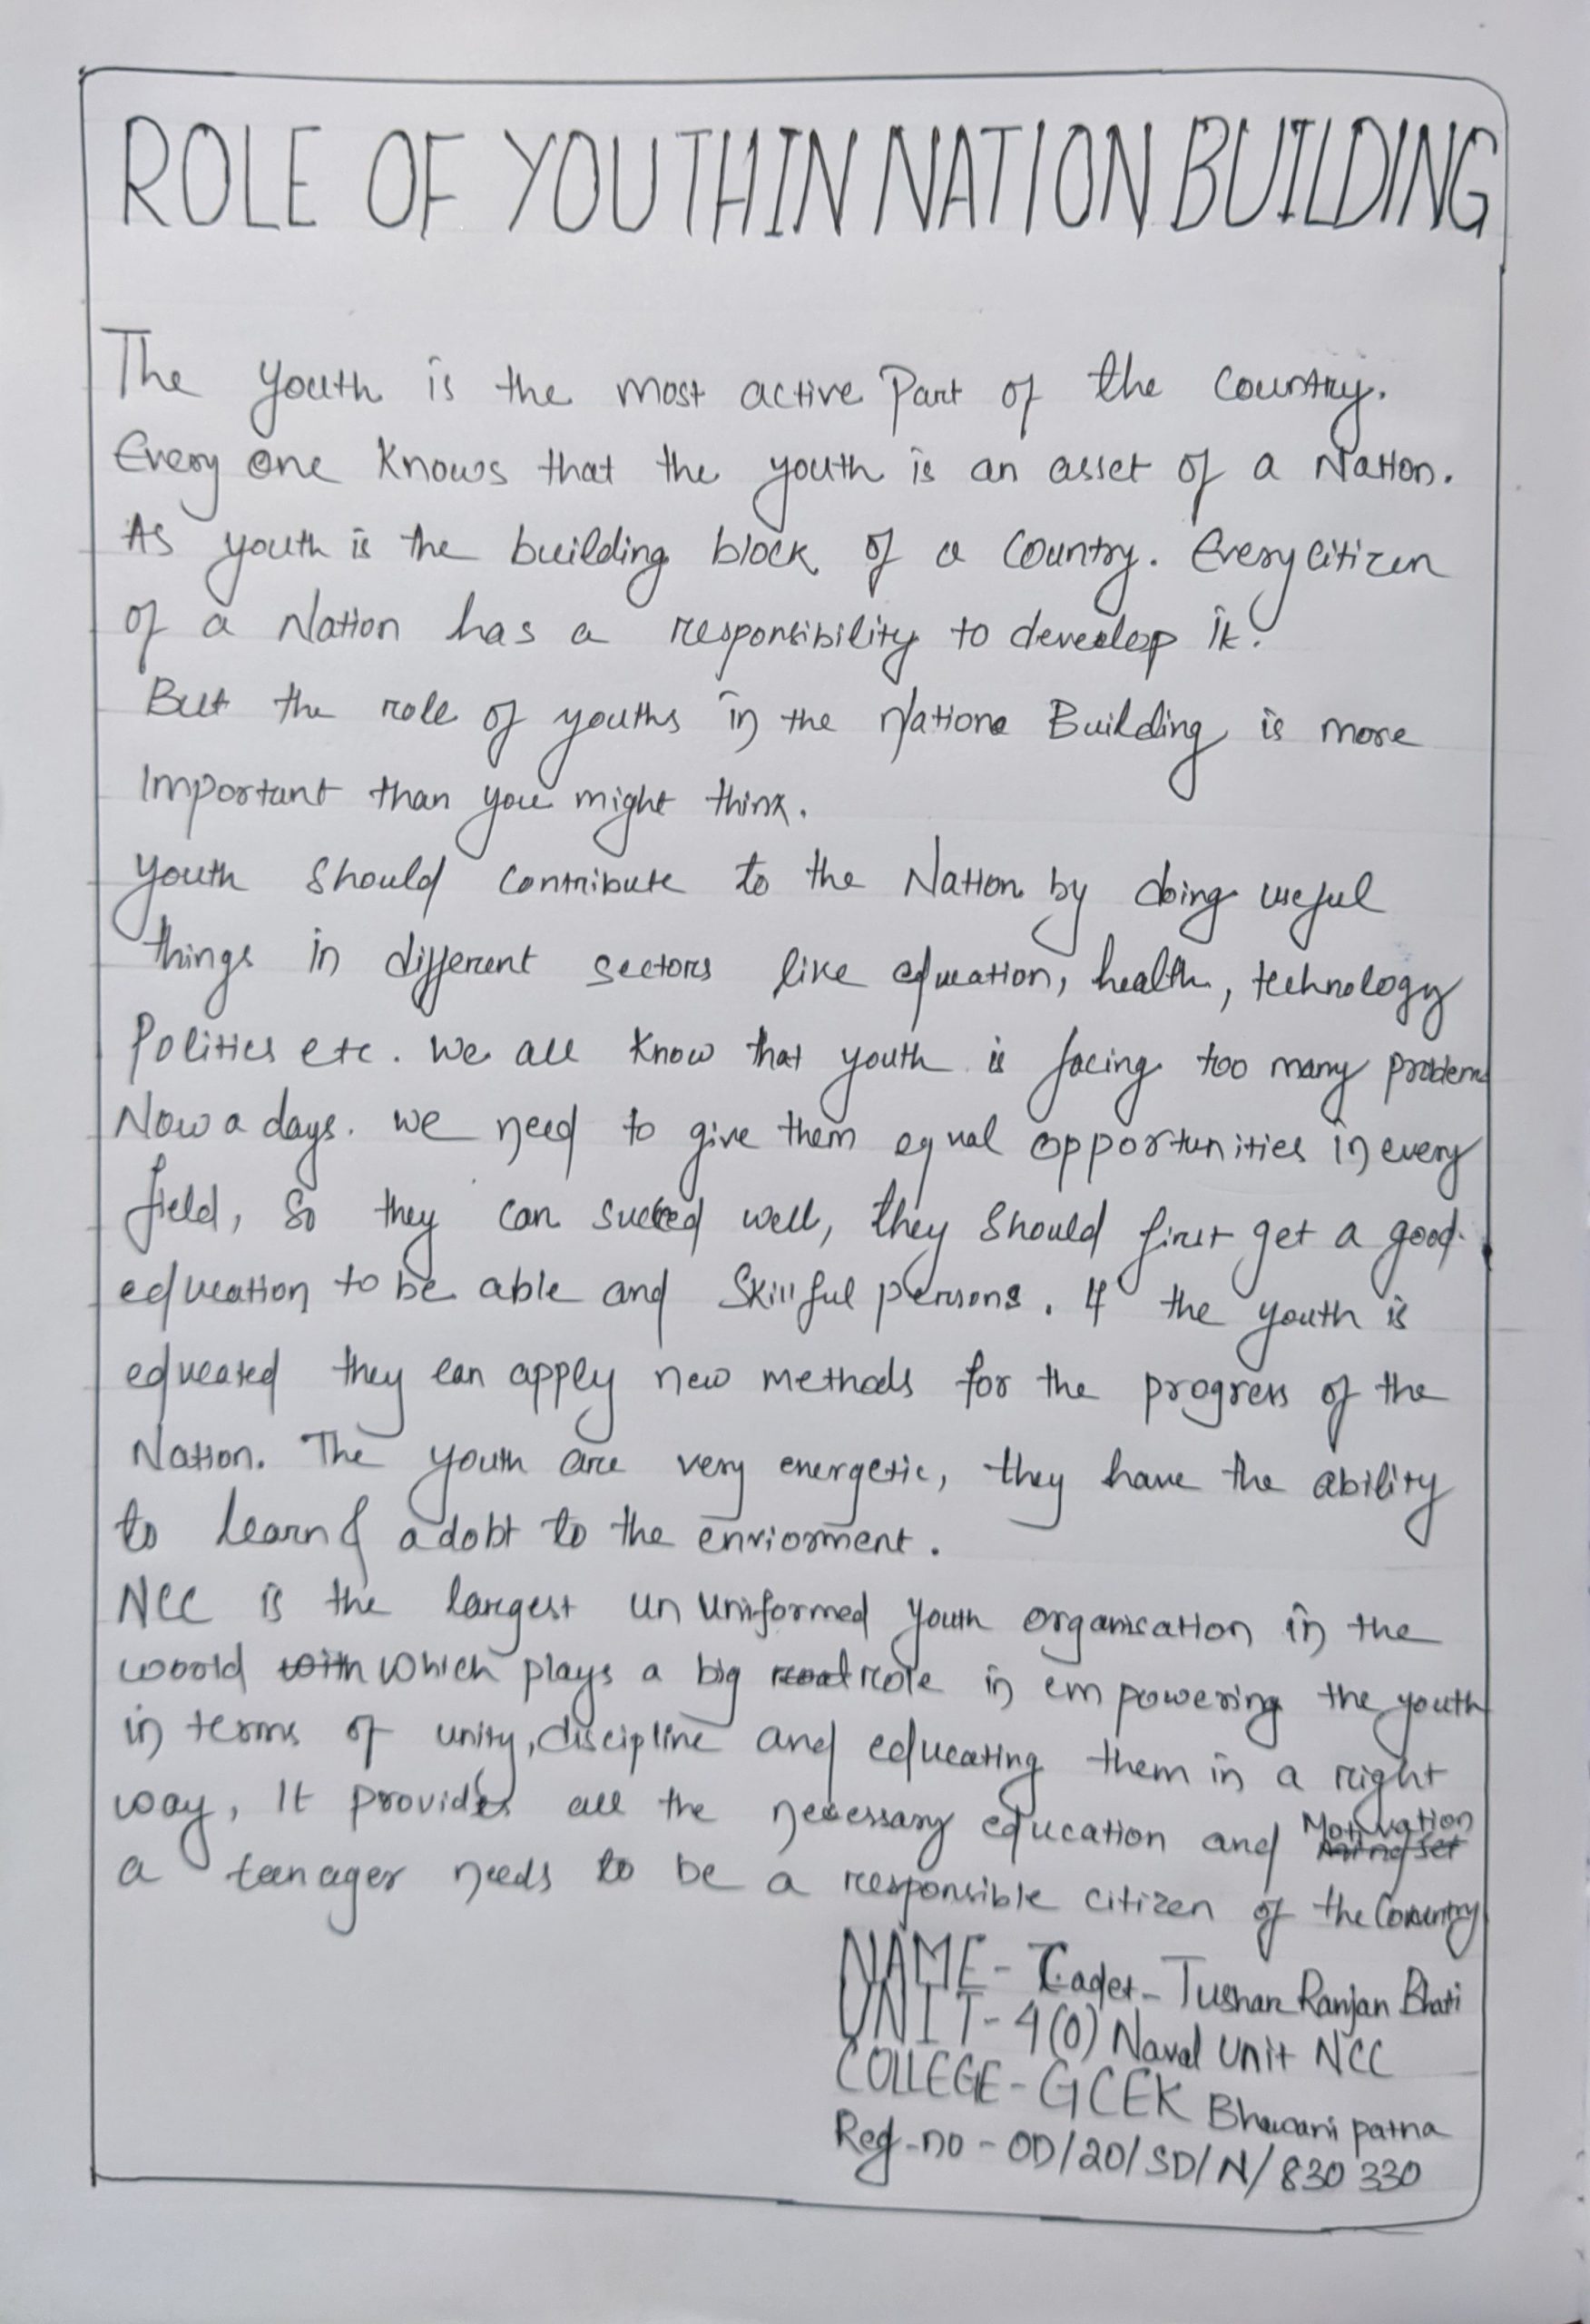 ROLE OF YOUTH IN NATION BUILDING
The youth is the most active Part of the country.
Every one knows that the youth is an asset of a Nation.
As youth is the building block of a country. Every citizen
of a Nation has a responsibility to develop it.
But the role of youths in the Nation Building is more
Important than you might think.
Youth should contribute to the Nation by doing useful
things in different sectors like education, health, technology
Politics etc. We all know that youth is facing too many problems
Now a days. we need to give them equal opportunities in every
field, so they can succeed well, they should first get a good
education to be able and skillful persons. If the youth is
educated they can apply new methods for the progress of the
Nation. The youth are very energetic, they have the ability
to learn & adobt to the enviorment.
NCC is the largest un uniformed youth organisation in the
woorld which plays a big role in empowering the youth
in terms of unity, discipline and educating them in a right
way, It provides all the necessary education and Motivation
a teenager needs to be a responsible citizen of the Country
NAME - Cadet - Tushar Ranjan Bhati
UNIT - 4(O) Naval Unit NCC
COLLEGE - GCEK Bhawanipatna
Reg-no - OD/20/SD/N/830 330